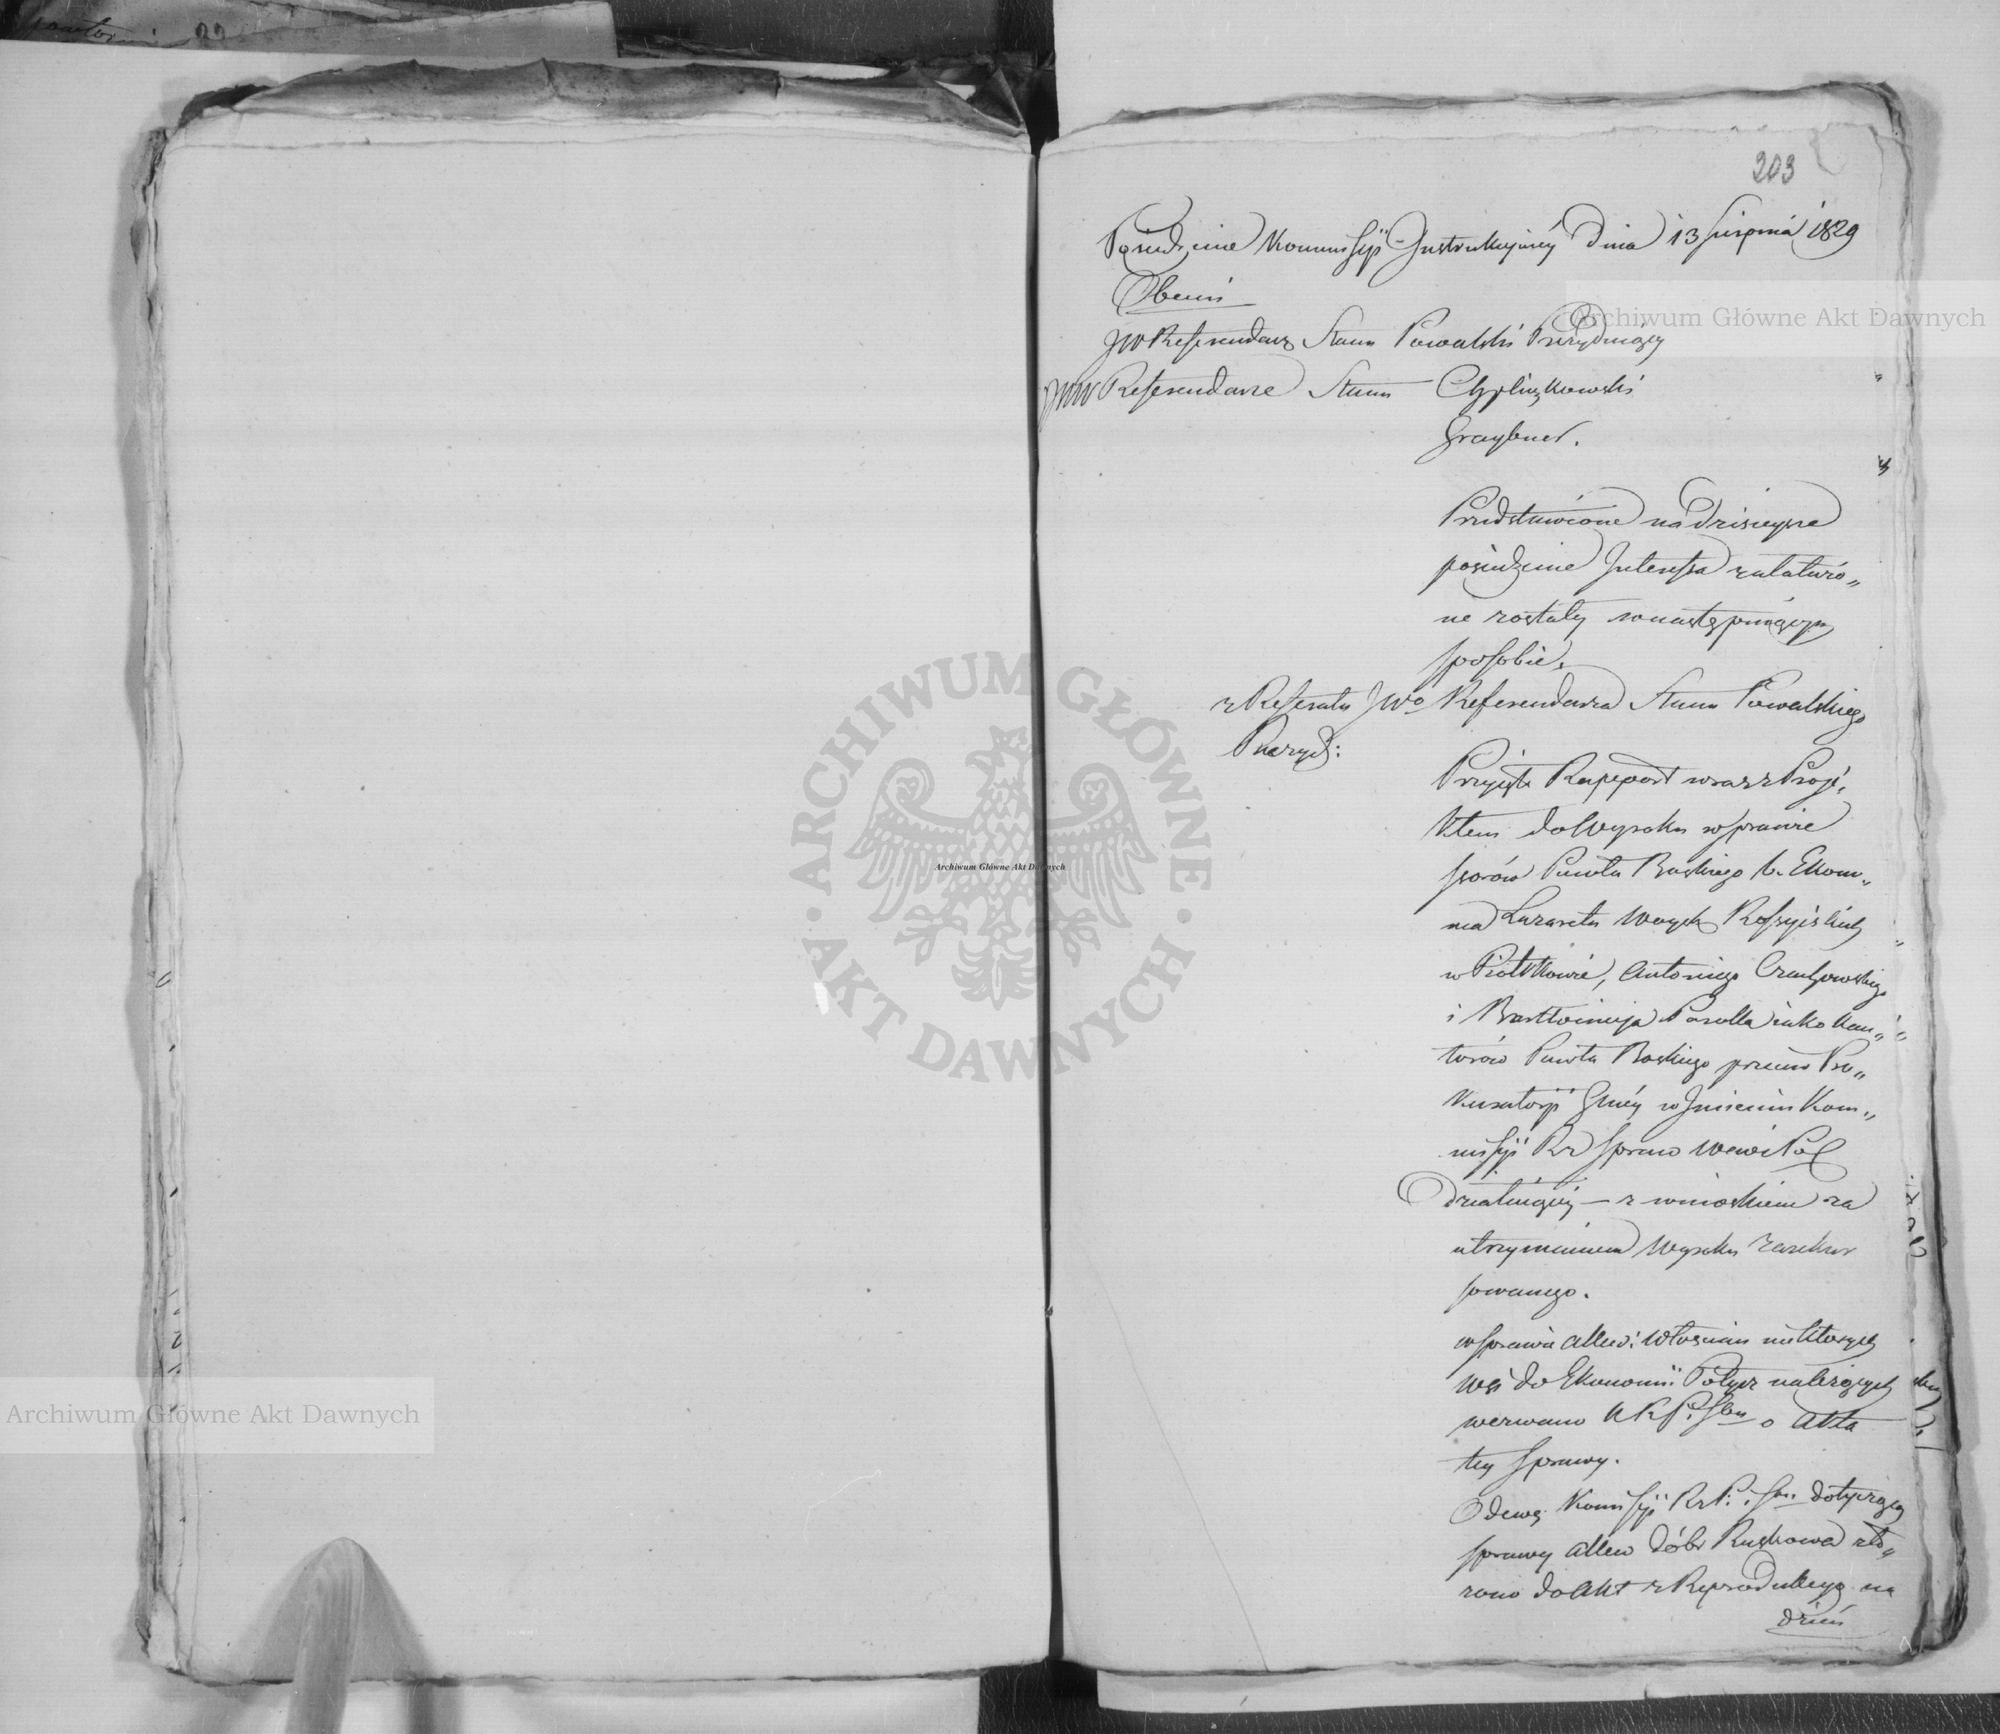 203
Posiedzenie Kommissyi Instrukcyinéy Dnia 13 Sierpnia 1829
Obecni
JW Referendarz Stanu Powalski Prezyduiący
JWW Referendarze Stanu Chyliczkowski
Graybner.
Przedstawione na dzisieysze
posiedzenie Interessa załatwio„
ne zostały w następuiącym
sposobie.
z Referatu JWo Referendarza Stanu Powalskiego
Prezyd:
Przyięto Rapport wraz z Proje„
ktem do Wyroku w sprawie
sporów Pawła Baskiego b. Ekono„
ma Lazaretu Woysk Rossyiskich
w Piotrkowie, Antoniego Czachowskiego
i Bartłomieja Parolla iako Kan„
torów Pawła Baskiego przeciw Pro„
kuratoryi Gnéy w Imieniu Kom„
missyi Rz Spraw Wew i Pol
Działaiącéy — z wnioskiem za
utrzymaniem Wyroku zarekur
sowanego.
w sprawie attew: Włościan niektórych
Wsi do Ekonomii Połycz należących
wezwano K R P. i Sbu o Akta
téy sprawy.
Odezwę Kommissyi Rz P. i Sbu dotyczącą
sprawy attew dóbr Ruskowa zło„
żono do Akt z Reprodukcyą na
dzień
Archiwum Główne Akt Dawnych
Archiwum Główne Akt Dawnych
ARCHIWUM GŁÓWNE · AKT DAWNYCH ·
Archiwum Główne Akt Dawnych